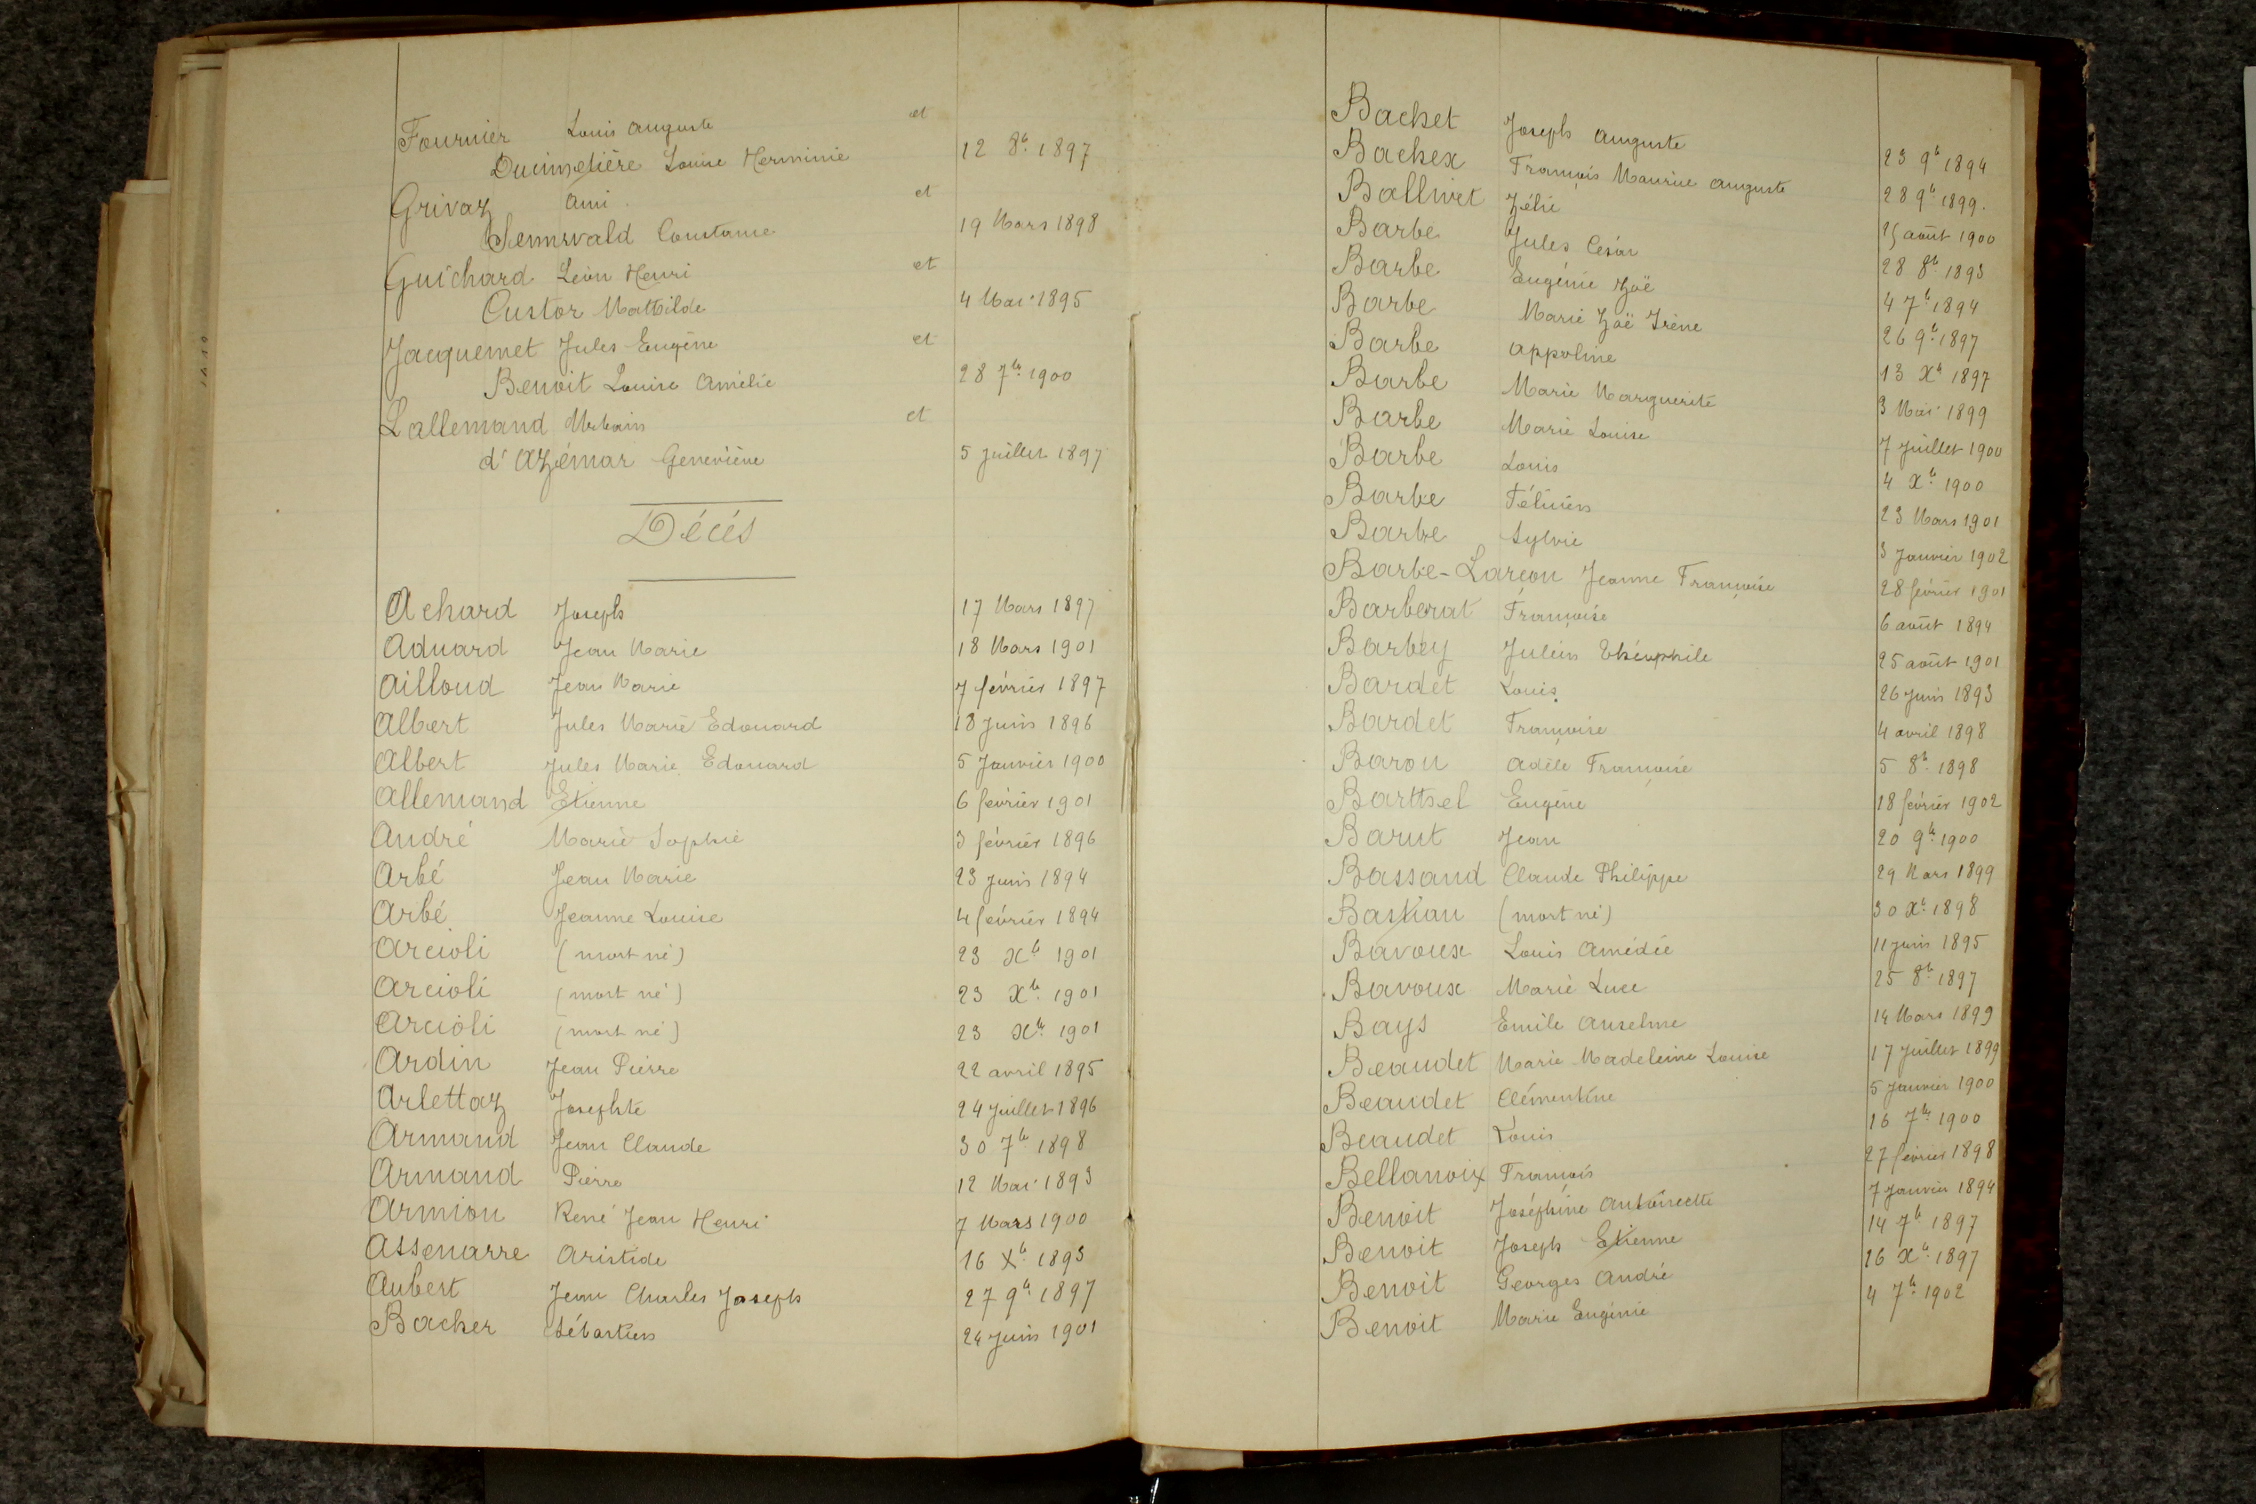 Fournier Louis Auguste et
Ducimetière Louise Herminie 12 8b. 1897
Grivaz Ami et
Sennwald Constance 19 Mars 1898
Guichard Léon Henri et
Custor Mathilde 4 Mai 1895
Jacquemet Jules Eugène et
Benoit Louise Amélie 28 7b. 1900
Lallemand Urbain et
d'Azémar Geneviève 5 juillet 1897
Décés
Achard Joseph 17 Mars 1897
Aduard Jean Marie 18 Mars 1901
Ailloud Jean Marie 7 février 1897
Albert Jules Marie Edouard 18 juin 1896
Albert Jules Marie Edouard 5 Janvier 1900
Allemand Etienne 6 février 1901
André Marie Sophie 3 février 1896
Arbé Jean Marie 23 juin 1894
Arbé Jeanne Louise 4 février 1894
Arcioli (mort né) 23 Xb 1901
Arcioli (mort né) 23 Xb. 1901
Arcioli (mort né) 23 Xb. 1901
Ardin Jean Pierre 22 avril 1895
Arlettaz Josephte 24 juillet 1896
Armand Jean Claude 30 7b 1898
Armand Pierre 12 Mai 1893
Armion René Jean Henri 7 Mars 1900
Assenarre Aristide 16 Xb. 1893
Aubert Jean Charles Joseph 27 9b. 1897
Bacher Sébastien 24 juin 1901
Bachet Joseph Auguste 23 9b 1894
Bachex François Maurice Auguste 28 9b. 1899.
Ballivet Zélie 25 août 1900
Barbe Jules César 28 8b. 1893
Barbe Eugénie Zoë 4 7b. 1894
Barbe Marie Zoë Irène 26 9b. 1897
Barbe Appoline 13 Xb 1897
Barbe Marie Marguerite 3 Mai 1899
Barbe Marie Louise 7 juillet 1900
Barbe Louis 4 Xb. 1900
Barbe Félicien 23 Mars 1901
Barbe Sylvie 3 Janvier 1902
Barbe-Larçon Jeanne Françoise 28 février 1901
Barberat Françoise 6 août 1894
Barbey Julien Théophile 25 août 1901
Bardet Louis 26 juin 1893
Bardet Françoise 4 avril 1898
Baron Adèle Françoise 5 8b. 1898
Barthel Eugène 18 février 1902
Barut Jean 20 9b. 1900
Bassand Claude Philippe 29 Mars 1899
Bastian (mort né) 30 Xb. 1898
Bavoux Louis Amédée 11 juin 1895
Bavoux Marie Luce 25 8b. 1897
Bays Emile Anselme 14 Mars 1899
Beaudet Marie Madeleine Louise 17 juillet 1899
Beaudet Clémentine 5 Janvier 1900
Beaudet Louis 16 7b. 1900
Bellanoix François 27 février 1898
Benoit Joséphine Antoinette 7 Janvier 1894
Benoit Joseph Etienne 14 7b 1897
Benoit Georges André 16 Xb. 1897
Benoit Marie Eugénie 4 7b. 1902